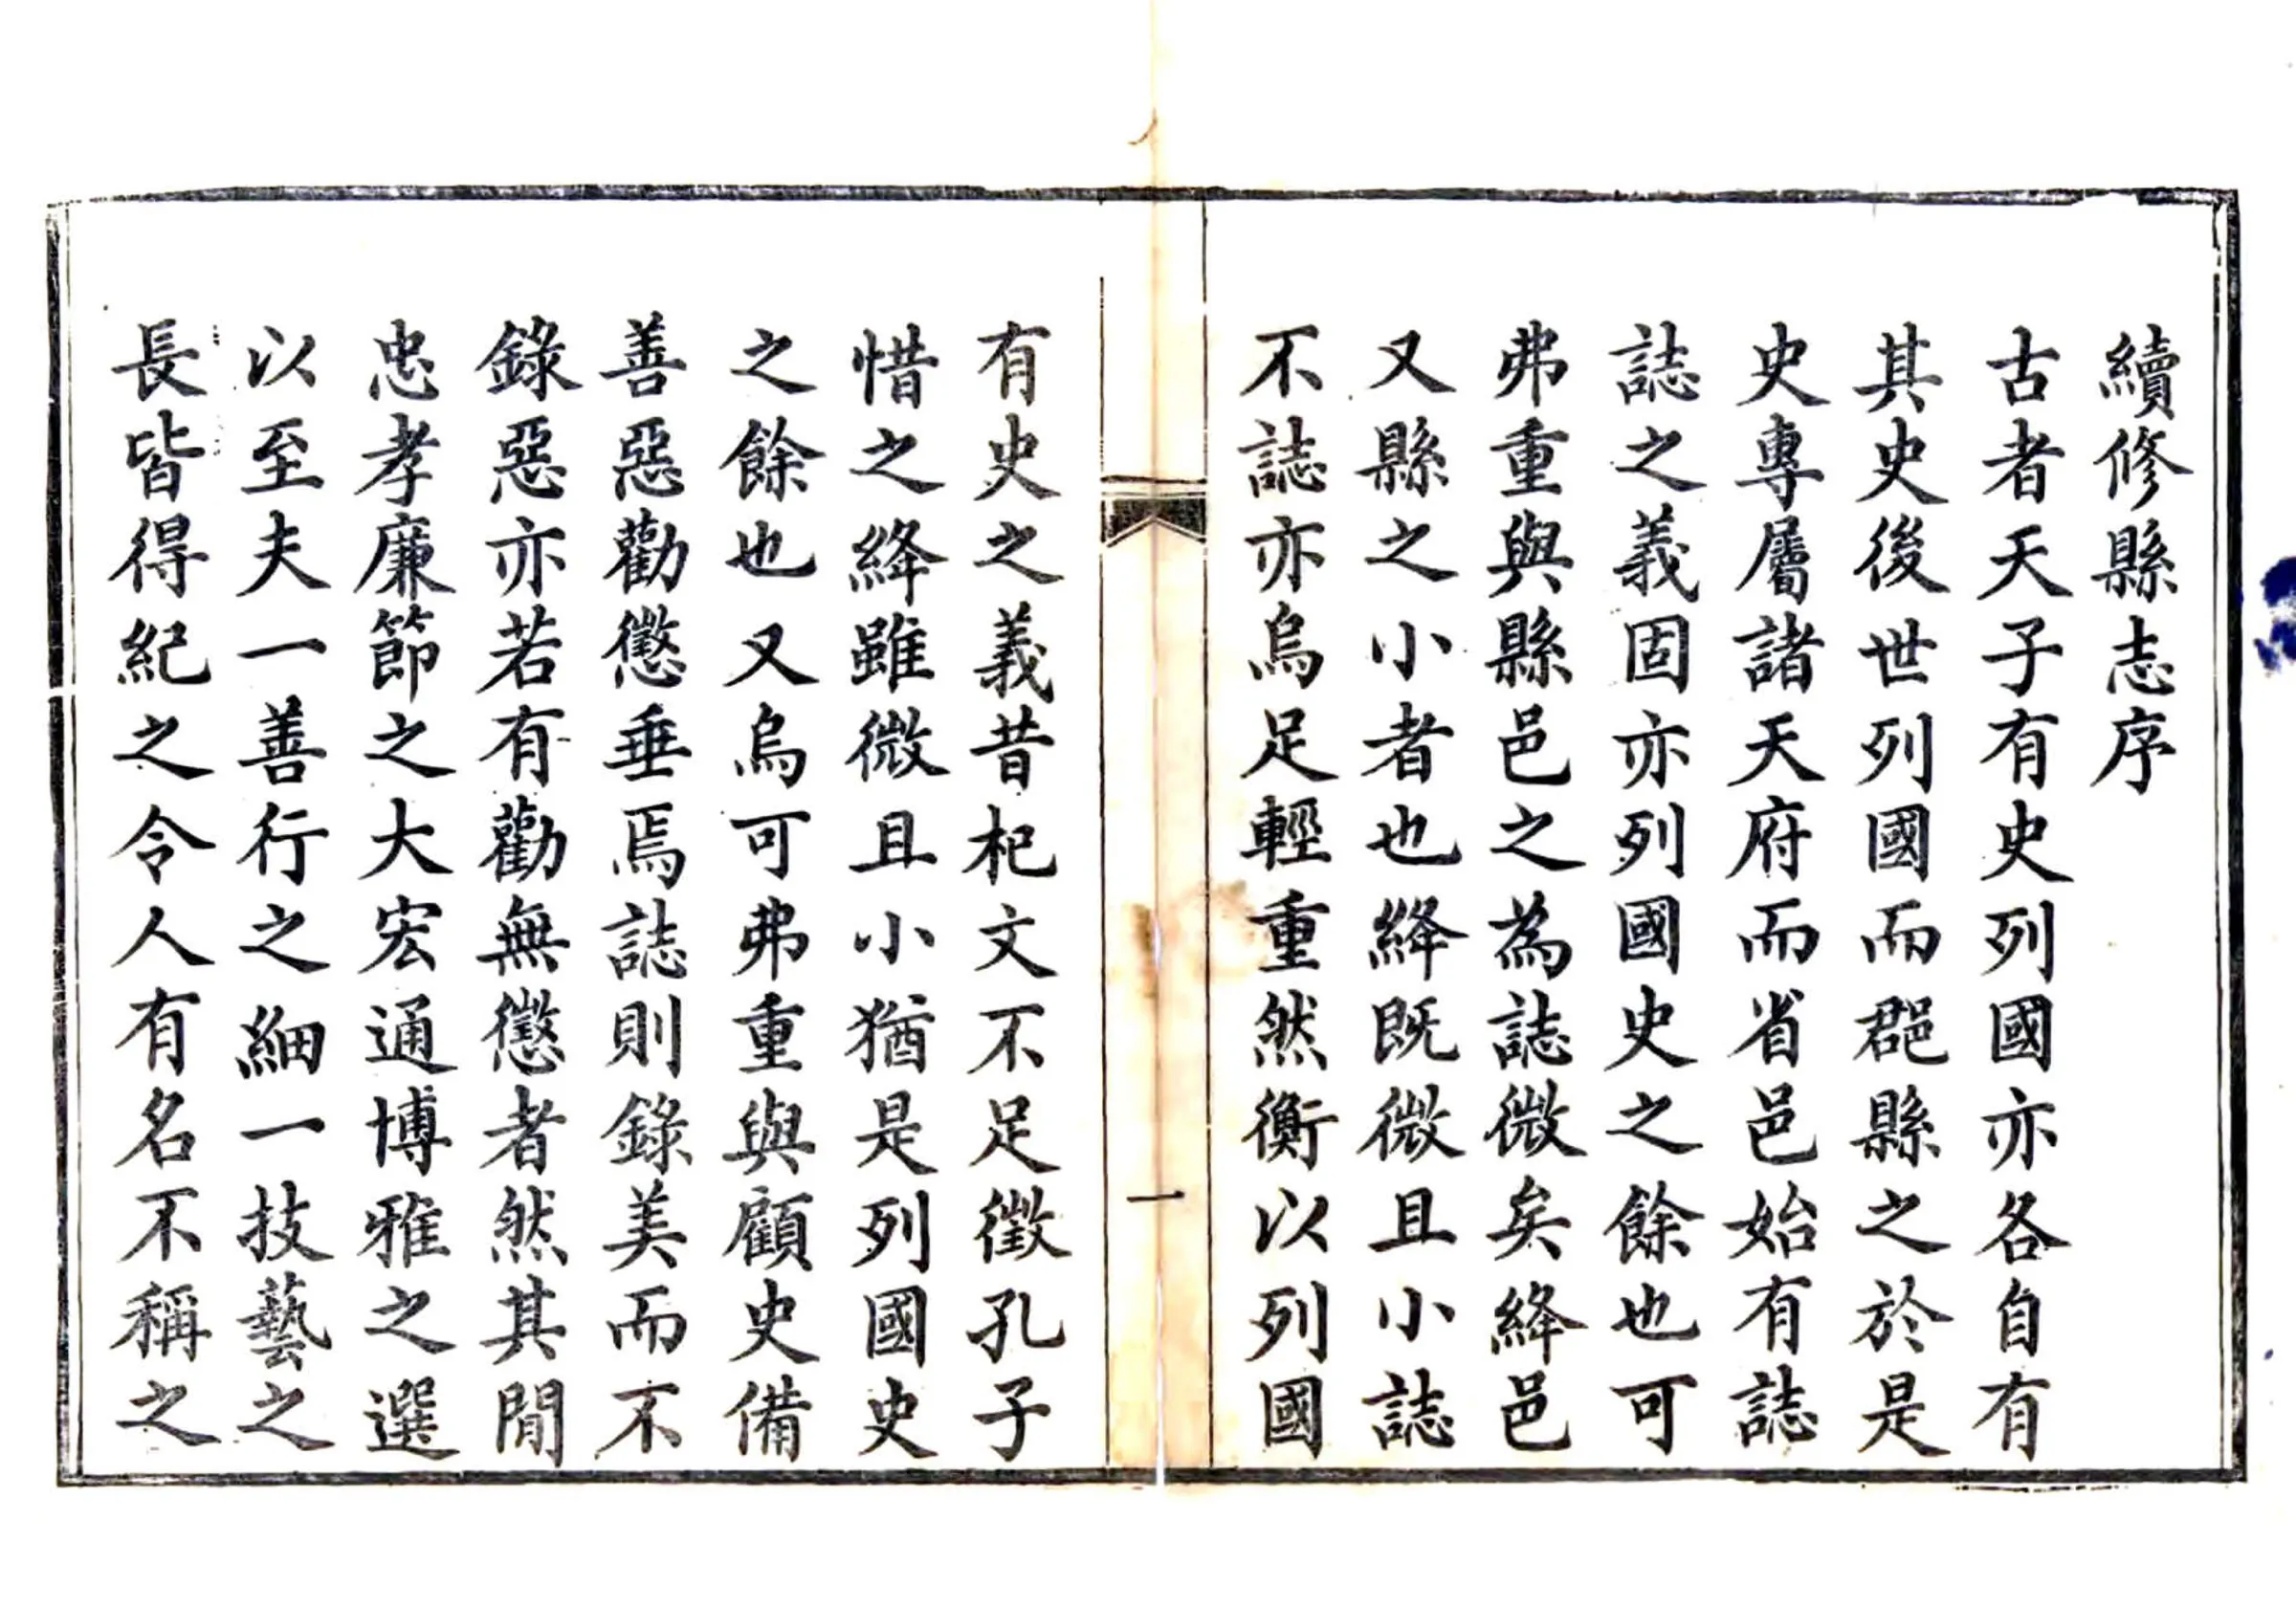 續修縣志序
古者天子有史列國亦各自有
其史後世列國而郡縣之於是
史專屬諸天府而省邑始有誌
誌之義固亦列國史之餘也可
弗重與縣邑之為誌微矣絳邑
又縣之小者也絳既微且小誌
不誌亦烏足輕重然衡以列國
一
有史之義昔杞文不足徵孔子
惜之絳雖微且小猶是列國史
之餘也又烏可弗重與顧史備
善惡勸懲垂焉誌則錄美而不
錄惡亦若有勸無懲者然其閒
忠孝廉節之大宏通博雅之選
以至夫一善行之細一技藝之
長皆得紀之令人有名不稱之